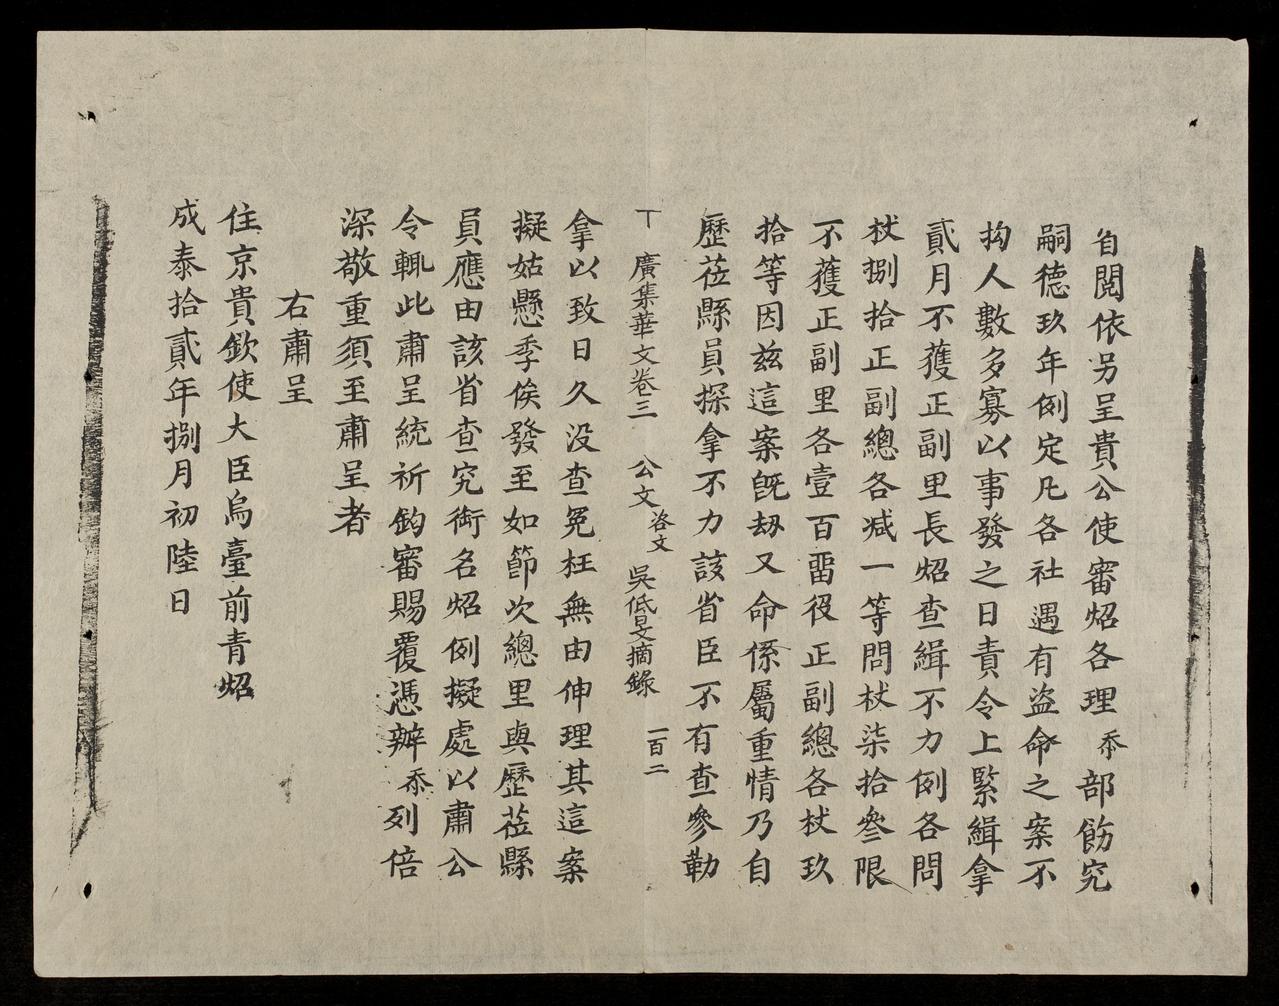 自閲依另呈貴公使審炤各理忝部飭究
嗣德玖年例定凡各社遇有盜命之案不
抅人數多寡以事發之日責令上緊緝拿
貳月不獲正副里長炤查緝不力例各問
杖捌拾正副總各减一等問杖柒拾叄限
不獲正副里各壹百畱役正副總各杖玖
拾等因兹這案旣刼又命係屬重情乃自
歷莅縣員探拿不力該省臣不有查參勒
丅 廣集華文卷三 公文 咨文 吳低旻摘錄 一百二
拿以致日久没查冤枉無由伸理其這案
擬姑懸季俟發至如節次總里與歷莅縣
員應由該省查究銜名炤例擬處以肅公
令輒此肅呈統祈鈞審賜覆憑辦忝列倍
深敬重須至肅呈者
右肅呈
住京貴欽使大臣烏臺前青炤
成泰拾貳年捌月初陸日